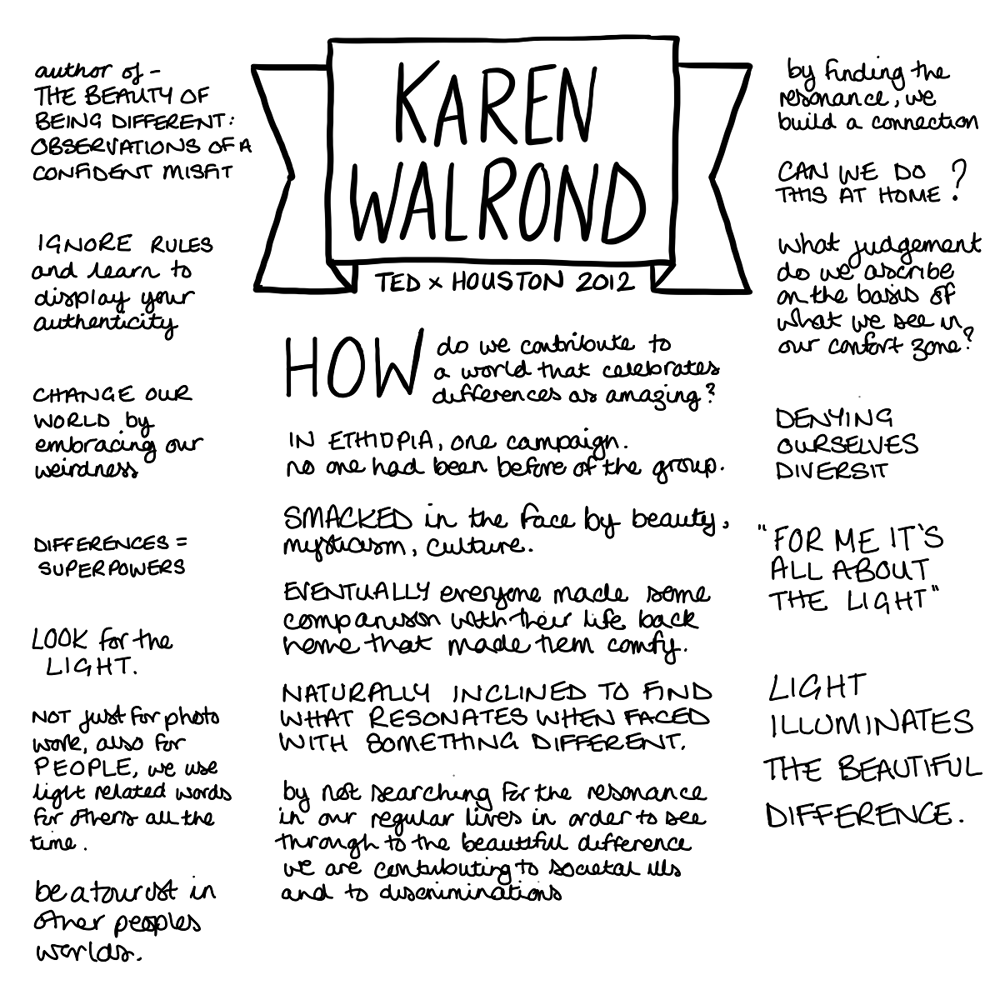 KAREN
WALROND
TED x HOUSTON 2012
author of -
THE BEAUTY OF
BEING DIFFERENT:
OBSERVATIONS OF A
CONFIDENT MISFIT
IGNORE RULES
and learn to
display your
authenticity
CHANGE OUR
WORLD by
embracing our
weirdness
DIFFERENCES =
SUPERPOWERS
LOOK for the
LIGHT.
NOT just for photo
work, also for
PEOPLE, we use
light related words
for others all the
time.
be a tourist in
other peoples
worlds.
HOW do we contribute to
a world that celebrates
differences as amazing?
IN ETHIOPIA, one campaign.
no one had been before of the group.
SMACKED in the face by beauty,
mysticism, culture.
EVENTUALLY everyone made some
comparison with their life back
home that made them comfy.
NATURALLY INCLINED TO FIND
WHAT RESONATES WHEN FACED
WITH SOMETHING DIFFERENT.
by not searching for the resonance
in our regular lives in order to see
through to the beautiful difference
we are contributing to societal ills
and to discriminations
by finding the
resonance, we
build a connection
CAN WE DO
THIS AT HOME?
what judgement
do we ascribe
on the basis of
what we see in
our confort zone?
DENYING
OURSELVES
DIVERSIT
"FOR ME IT'S
ALL ABOUT
THE LIGHT"
LIGHT
ILLUMINATES
THE BEAUTIFUL
DIFFERENCE.